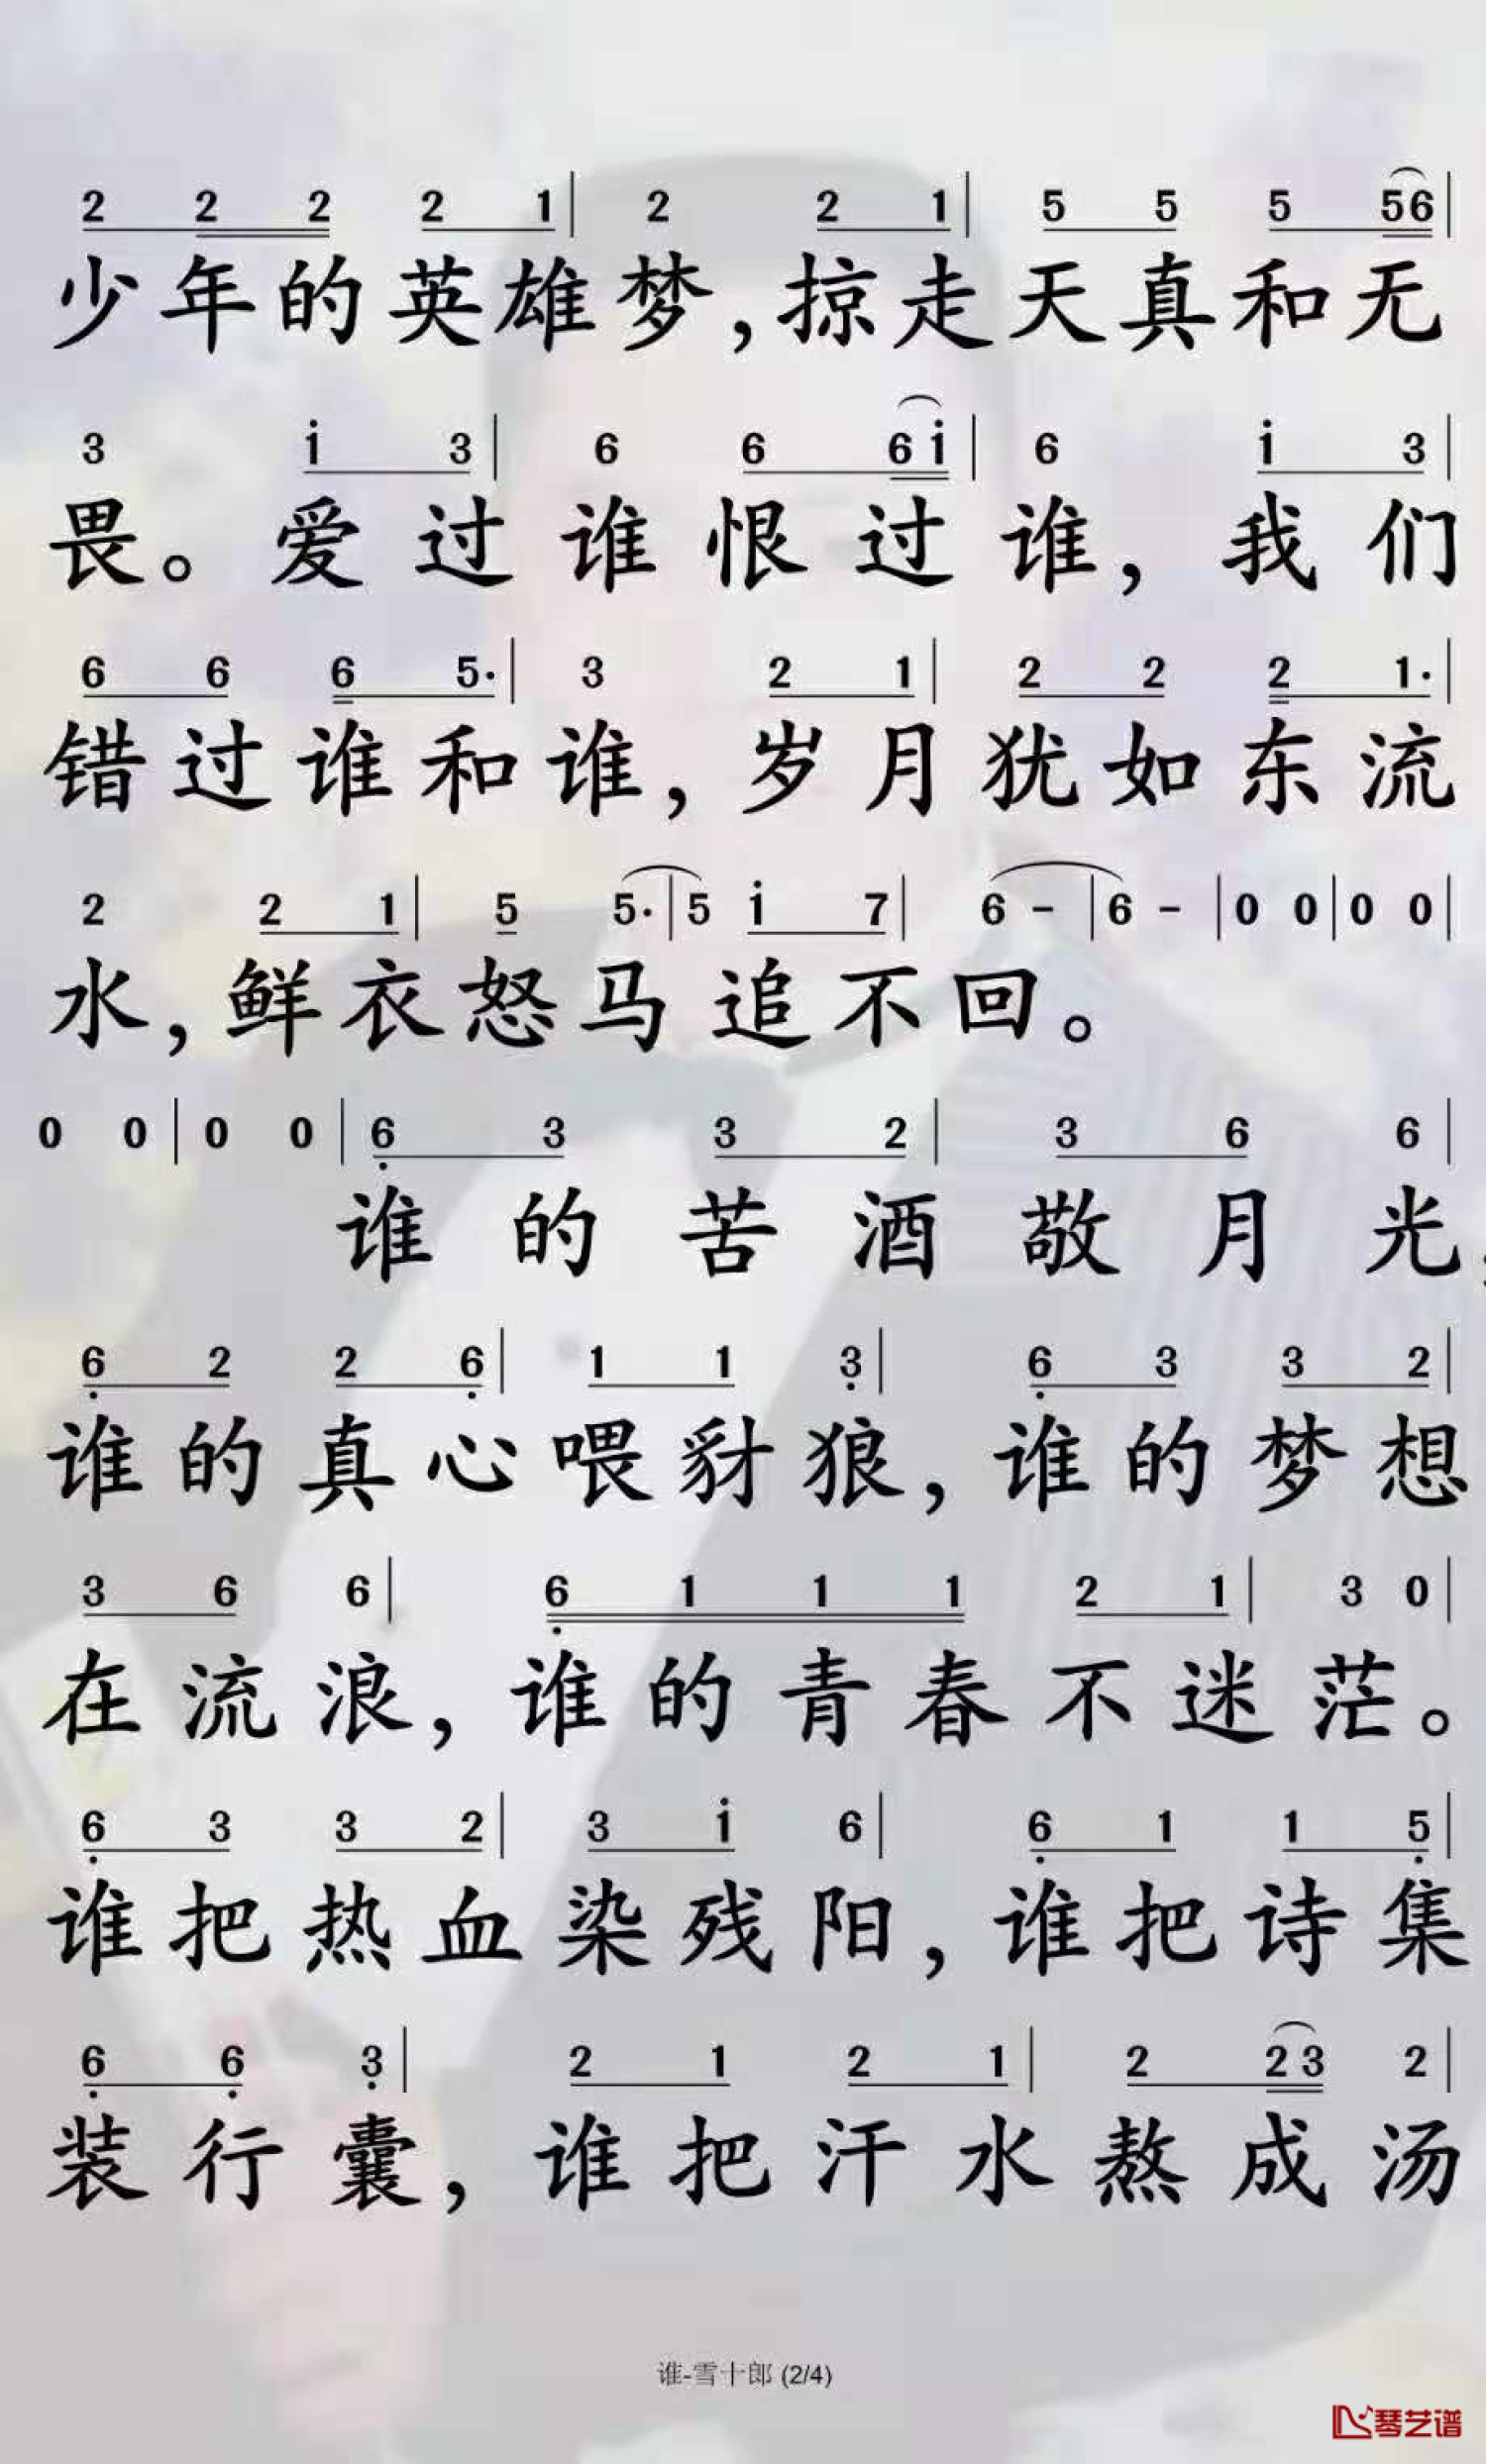 2 2 2 2 1 | 2 2 1 | 5 5 5 56 |
少年的英雄梦，掠走天真和无
3 i 3 | 6 6 6 i | 6 i 3 |
畏。爱过谁恨过谁，我们
6 6 6 5· | 3 2 1 | 2 2 2 1· |
错过谁和谁，岁月犹如东流
2 2 1 | 5 5· | 5 i 7 | 6 - | 6 - | 0 0 | 0 0 |
水，鲜衣怒马追不回。
0 0 | 0 0 | 6̣ 3 3 2 | 3 6 6 |
谁的苦酒敬月光，
6̣ 2 2 6̣ | 1 1 3̣ | 6̣ 3 3 2 |
谁的真心喂豺狼，谁的梦想
3 6 6 | 6̣ 1 1 1 2 1 | 3 0 |
在流浪，谁的青春不迷茫。
6̣ 3 3 2 | 3 i 6 | 6̣ 1 1 5̣ |
谁把热血染残阳，谁把诗集
6̣ 6̣ 3̣ | 2 1 2 1 | 2 2 3 2 |
装行囊，谁把汗水熬成汤
谁-雪十郎 (2/4)
琴艺谱